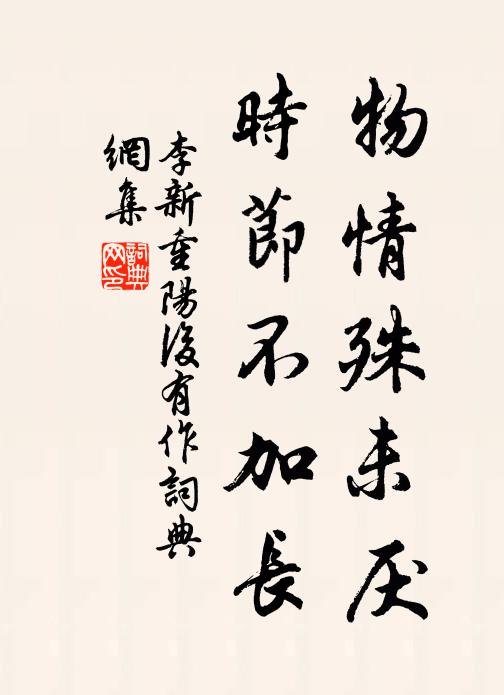 物情殊未厌
時節不加長
李新重陽後有作詞典
網集
詞典
网印